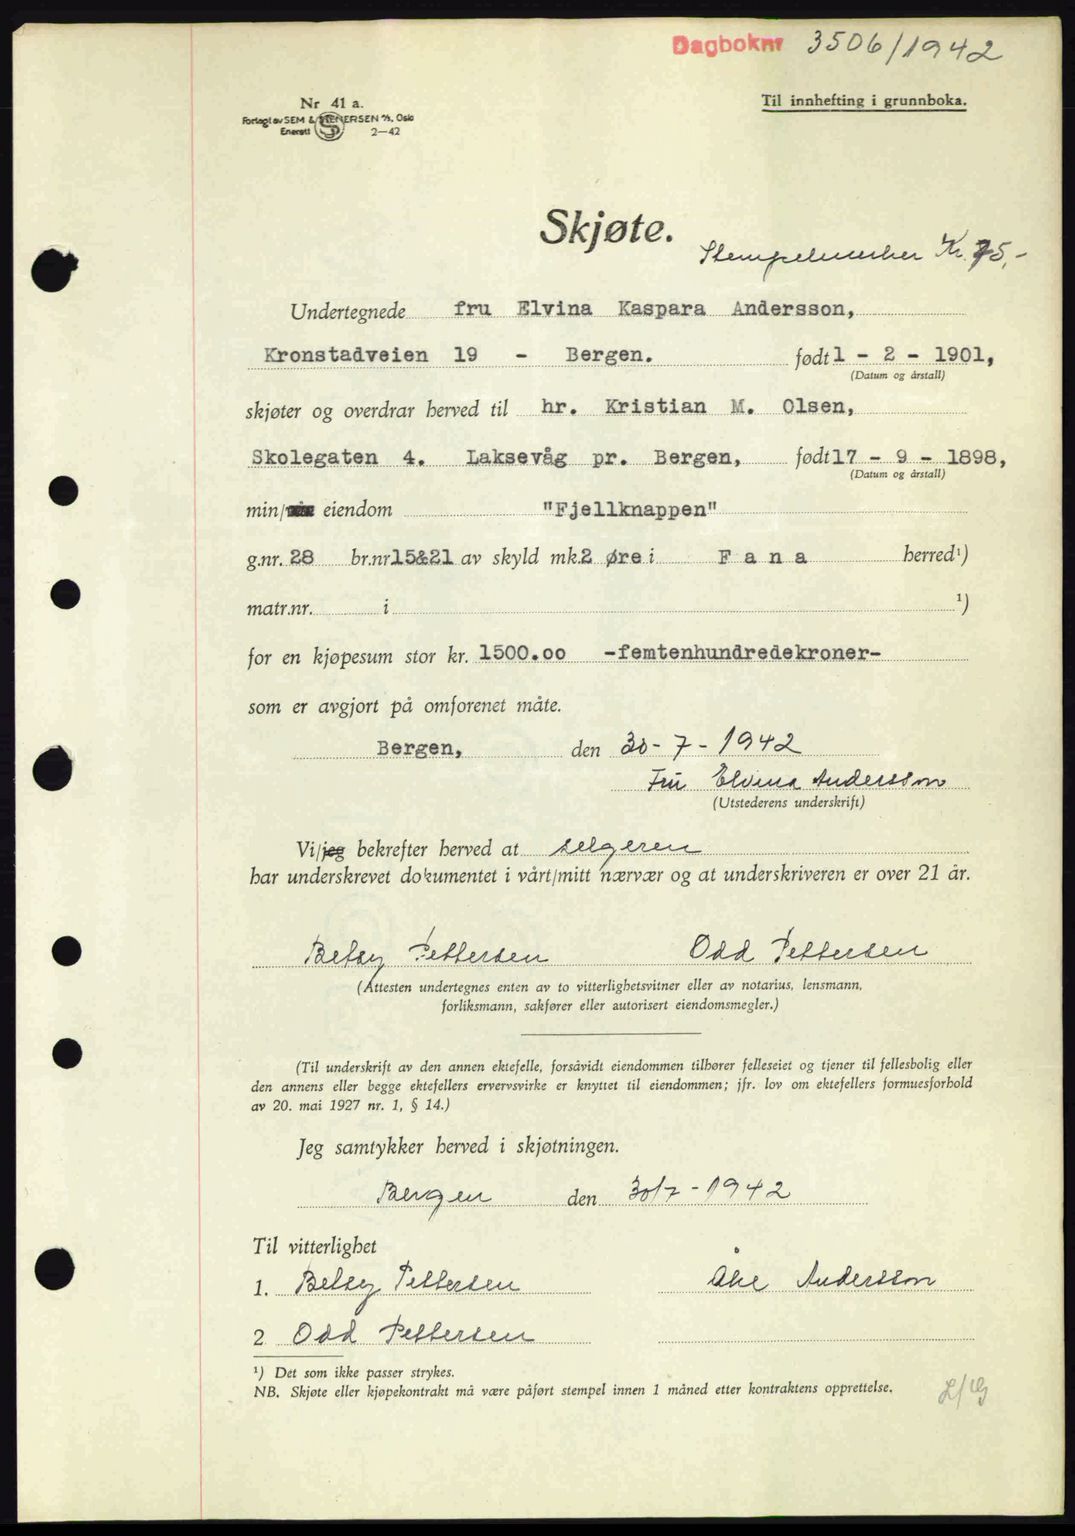 Dagboknr 3506/1942
Nr 41 a.
Til innhefting i grunnboka.
Forlagt av SEM & STENERSEN A/S, Oslo
Enerett 2—42
Skjøte.
Stempelmerker Kr. 75,-
Undertegnede fru Elvina Kaspara Andersson,
Kronstadveien 19 - Bergen. født 1 - 2 - 1901,
(Datum og årstall)
skjøter og overdrar herved til hr. Kristian M. Olsen,
Skolegaten 4. Laksevåg pr. Bergen, født 17 - 9 - 1898,
(Datum og årstall)
min/ eiendom "Fjellknappen"
g.nr. 28 br.nr. 15&21 av skyld mk. 2 Øre i Fana herred ¹)
matr.nr. i ¹)
for en kjøpesum stor kr. 1500.oo -femtenhundredekroner-
som er avgjort på omforenet måte.
Bergen, den 30-7-1942
Fru Elvina Andersson
(Utstederens underskrift)
Vi/jeg bekrefter herved at selgeren
har underskrevet dokumentet i vårt/mitt nærvær og at underskriveren er over 21 år.
Betsy Pettersen Odd Pettersen
(Attesten undertegnes enten av to vitterlighetsvitner eller av notarius, lensmann,
forliksmann, sakfører eller autorisert eiendomsmegler.)
(Til underskrift av den annen ektefelle, forsåvidt eiendommen tilhører felleseiet og tjener til fellesbolig eller
den annens eller begge ektefellers ervervsvirke er knyttet til eiendommen; jfr. lov om ektefellers formuesforhold
av 20. mai 1927 nr. 1, § 14.)
Jeg samtykker herved i skjøtningen.
Bergen den 30/7-1942
Til vitterlighet
1. Betsy Pettersen Åke Andersson
2 Odd Pettersen
¹) Det som ikke passer strykes.
NB. Skjøte eller kjøpekontrakt må være påført stempel innen 1 måned etter kontraktens opprettelse.